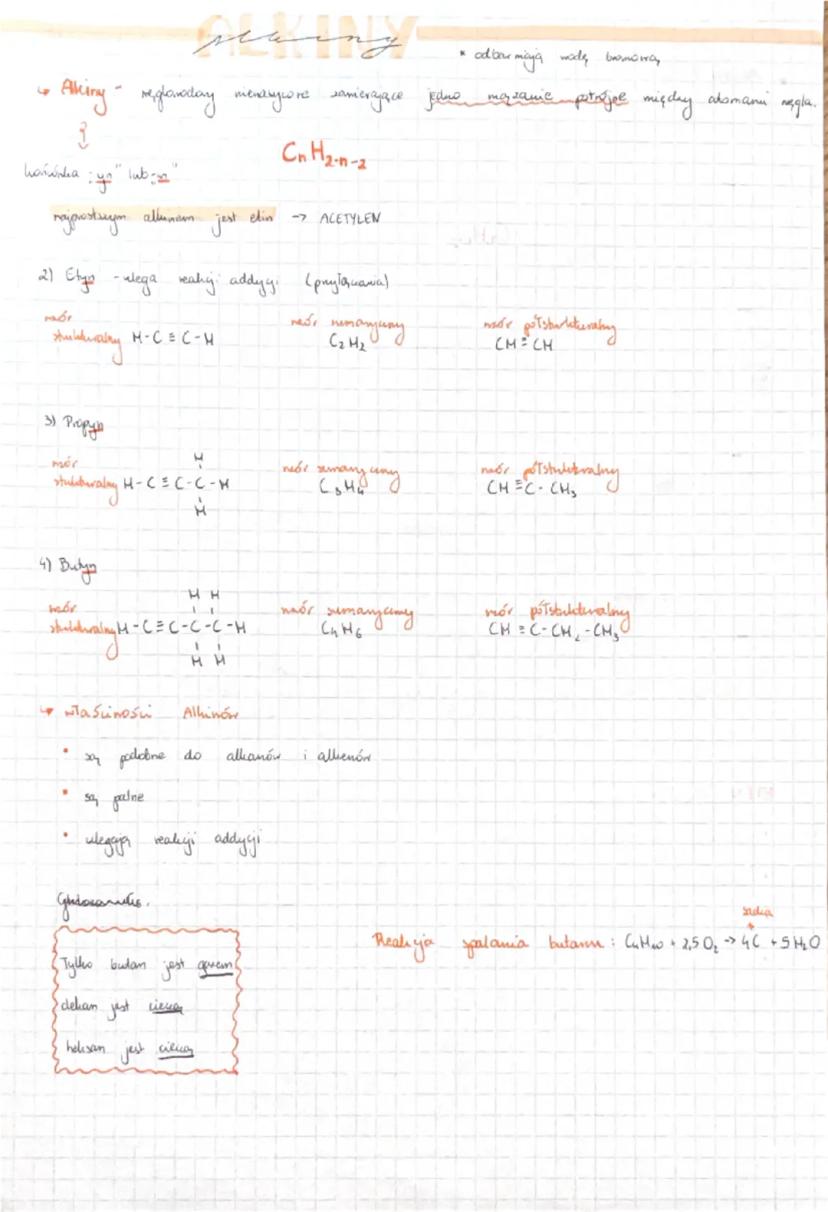 ALKINY
alkiny
* odbarwiają wodę bromową
↳ Alkiny - węglowodory nienasycone zawierające jedno wiązanie potrójne między atomami węgla.
końcówka "yn" lub "in"
CnH2·n-2
najprostszym alkinem jest etin -> ACETYLEN
2) Etyn - ulega reakcji addycji (przyłączania)
wzór strukturalny H-C≡C-H
wzór sumaryczny C2H2
wzór półstrukturalny CH≡CH
3) Propyn
wzór strukturalny H-C≡C-C-H
H
H
wzór sumaryczny C3H4
wzór półstrukturalny CH≡C-CH3
4) Butyn
wzór strukturalny H-C≡C-C-C-H
H H
H H
wzór sumaryczny C4H6
wzór półstrukturalny CH≡C-CH2-CH3
↳ właściwości Alkinów
• są podobne do alkanów i alkenów
• są palne
• ulegają reakcji addycji
Tylko butan jest gazem
dekan jest cieczą
heksan jest cieczą
sadza
Reakcja spalania butanu: C4H10 + 2,5O2 -> 4C + 5H2O